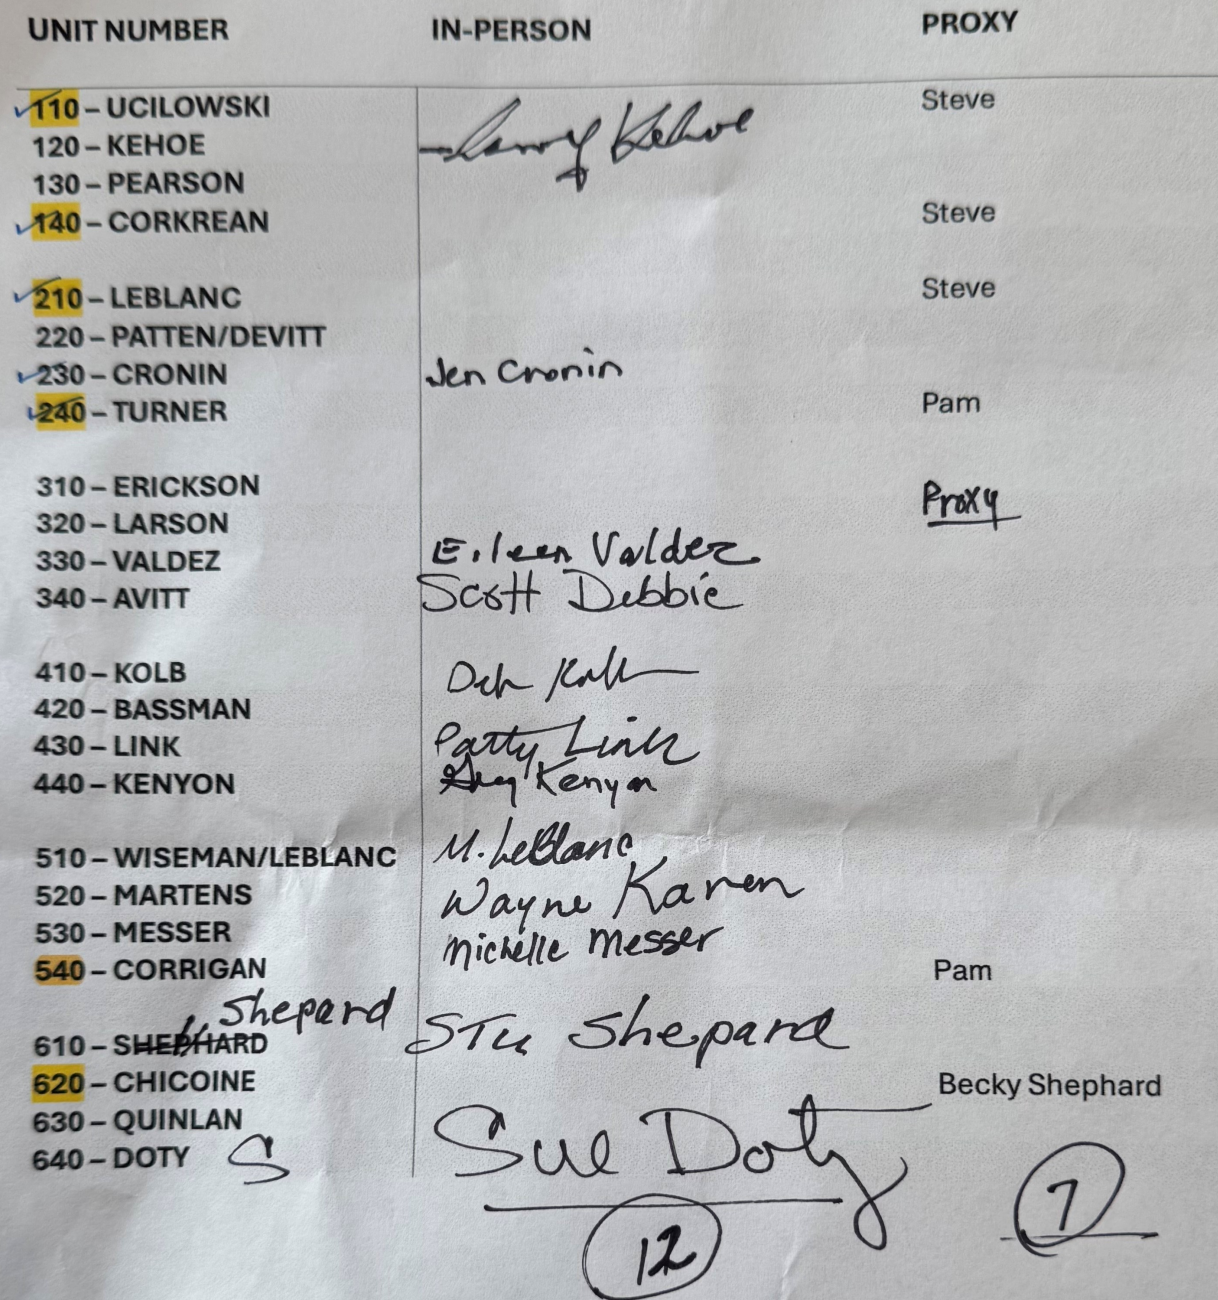 UNIT NUMBER IN-PERSON PROXY
110 – UCILOWSKI Steve
120 – KEHOE Kehoe
130 – PEARSON
140 – CORKREAN Steve
210 – LEBLANC Steve
220 – PATTEN/DEVITT
230 – CRONIN Jen Cronin
240 – TURNER Pam
310 – ERICKSON Proxy
320 – LARSON
330 – VALDEZ Eileen Valdez
340 – AVITT Scott Debbie
410 – KOLB Deb Kolb
420 – BASSMAN
430 – LINK Patty Link
440 – KENYON Greg Kenyon
510 – WISEMAN/LEBLANC M. LeBlanc
520 – MARTENS Wayne Karen
530 – MESSER Michelle Messer
540 – CORRIGAN Pam
Shepard
610 – SHEPHARD Stu Shepard
620 – CHICOINE Becky Shephard
630 – QUINLAN
640 – DOTY S Sue Doty
12 7